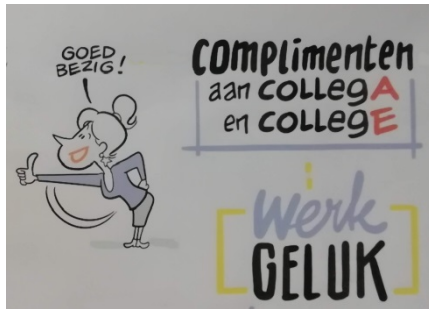 GOED
BEZIG!
COMPLIMENTEN
aan COLLEGA
en COLLEGE
Werk
GELUK